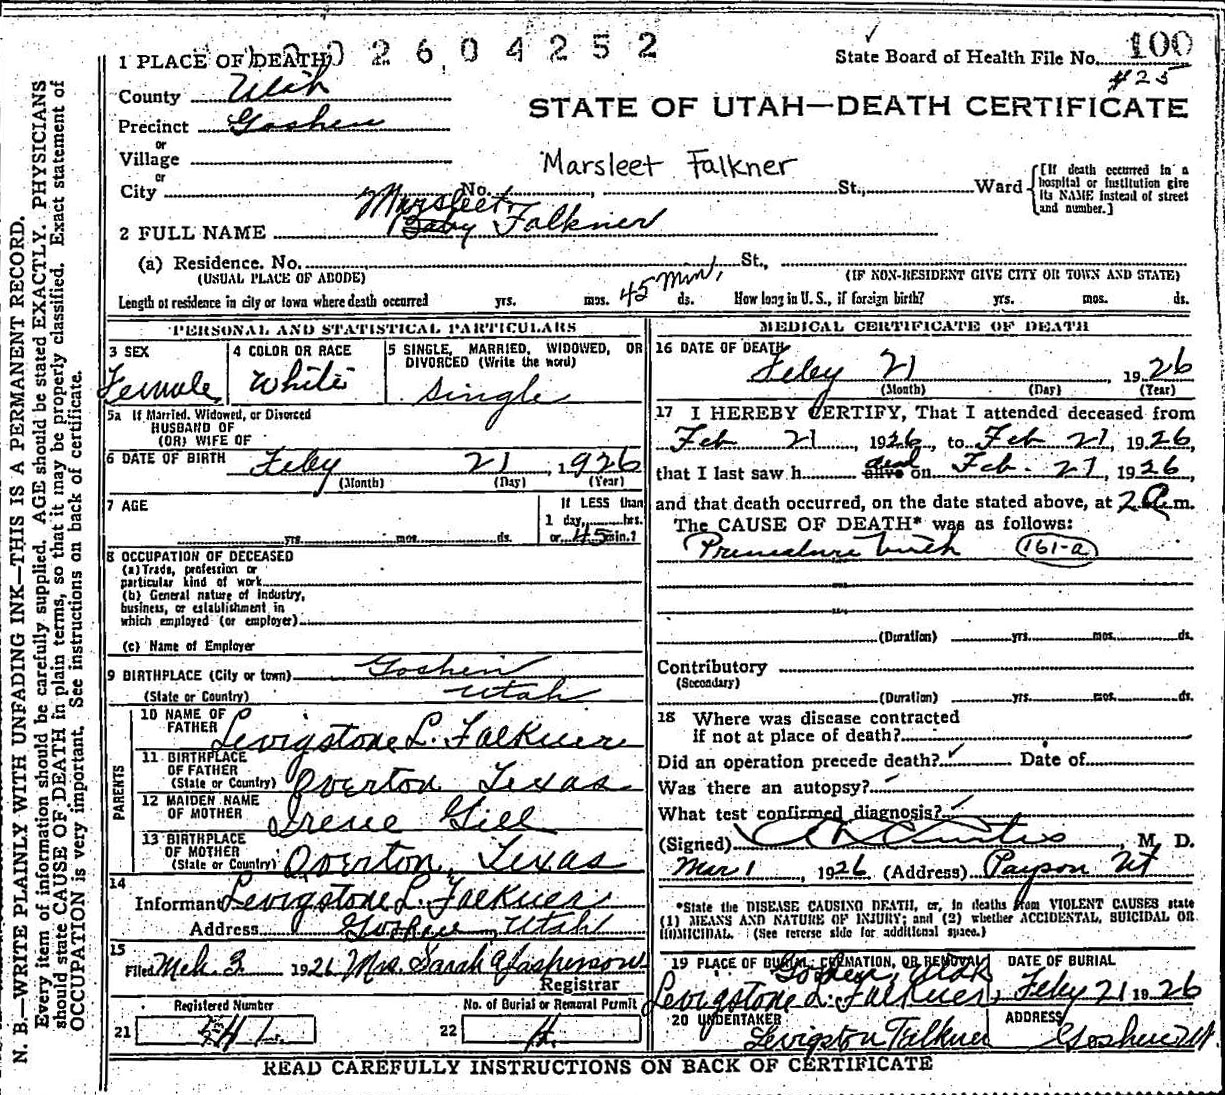 1 PLACE OF DEATH 2604252
State Board of Health File No. 100
#25
County Utah
STATE OF UTAH—DEATH CERTIFICATE
Precinct Goshen
or
Village
Marsleet Falkner
or
City No. , St., Ward [If death occurred in a hospital or institution give its NAME instead of street and number.]
Marsleet
2 FULL NAME Baby Falkner
(a) Residence. No. St.,
(USUAL PLACE OF ABODE) (IF NON-RESIDENT GIVE CITY OR TOWN AND STATE)
Length of residence in city or town where death occurred yrs. mos. 45 Min. ds. How long in U. S., if foreign birth? yrs. mos. ds.
PERSONAL AND STATISTICAL PARTICULARS
3 SEX
Female
4 COLOR OR RACE
White
5 SINGLE, MARRIED, WIDOWED, OR
DIVORCED (Write the word)
Single
5a If Married, Widowed, or Divorced
HUSBAND OF
(OR) WIFE OF
6 DATE OF BIRTH Feby 21, 1926
(Month) (Day) (Year)
7 AGE
yrs. mos. ds.
If LESS than
1 day, hrs.
or 45 min.?
8 OCCUPATION OF DECEASED
(a) Trade, profession or
particular kind of work
(b) General nature of industry,
business, or establishment in
which employed (or employer)
(c) Name of Employer
9 BIRTHPLACE (City or town) Goshen
(State or Country) Utah
PARENTS
10 NAME OF
FATHER Levigstone L. Falkner
11 BIRTHPLACE
OF FATHER
(State or Country) Overton Texas
12 MAIDEN NAME
OF MOTHER Irene Gill
13 BIRTHPLACE
OF MOTHER
(State or Country) Overton, Texas
14
Informant Levigstone L. Falkner
Address Goshen, Utah
15
Filed Mch. 3 1926 Mrs. Sarah
Registrar
Registered Number
21
No. of Burial or Removal Permit
22 4.
MEDICAL CERTIFICATE OF DEATH
16 DATE OF DEATH
Feby 21, 1926
(Month) (Day) (Year)
17 I HEREBY CERTIFY, That I attended deceased from
Feb 21 1926, to Feb 21, 1926,
that I last saw h alive dead on Feb. 21, 1926,
and that death occurred, on the date stated above, at 2 a m.
The CAUSE OF DEATH* was as follows:
Premature birth 161-a
(Duration) yrs. mos. ds.
Contributory
(Secondary)
(Duration) yrs. mos. ds.
18 Where was disease contracted
if not at place of death?
Did an operation precede death? ✓ Date of
Was there an autopsy? ✓
What test confirmed diagnosis? ✓
(Signed) Curtis, M. D.
Mar 1, 1926 (Address) Payson Ut
*State the DISEASE CAUSING DEATH, or, in deaths from VIOLENT CAUSES state
(1) MEANS AND NATURE OF INJURY; and (2) whether ACCIDENTAL, SUICIDAL OR
HOMICIDAL. (See reverse side for additional space.)
19 PLACE OF BURIAL, CREMATION, OR REMOVAL
Goshen, Utah
Levigstone L. Falkner,
DATE OF BURIAL
Feby 21 1926
20 UNDERTAKER
Levigston Falkner
ADDRESS
Goshen Ut
READ CAREFULLY INSTRUCTIONS ON BACK OF CERTIFICATE
N. B.—WRITE PLAINLY WITH UNFADING INK—THIS IS A PERMANENT RECORD.
Every item of information should be carefully supplied. AGE should be stated EXACTLY. PHYSICIANS
should state CAUSE OF DEATH in plain terms, so that it may be properly classified. Exact statement of
OCCUPATION is very important. See instructions on back of certificate.